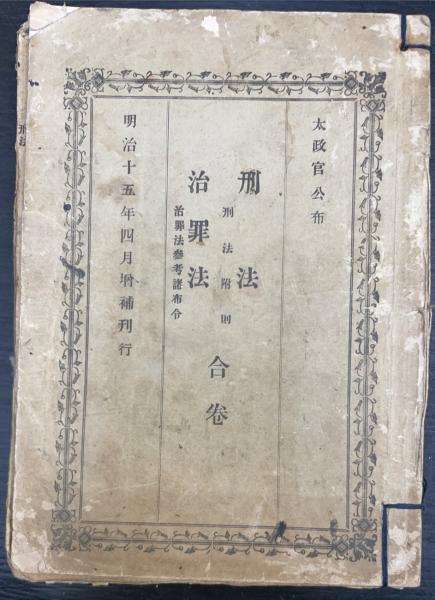 太政官公布
刑法
刑法附則
治罪法
治罪法參考諸布令
合卷
明治十五年四月增補刊行
刑法